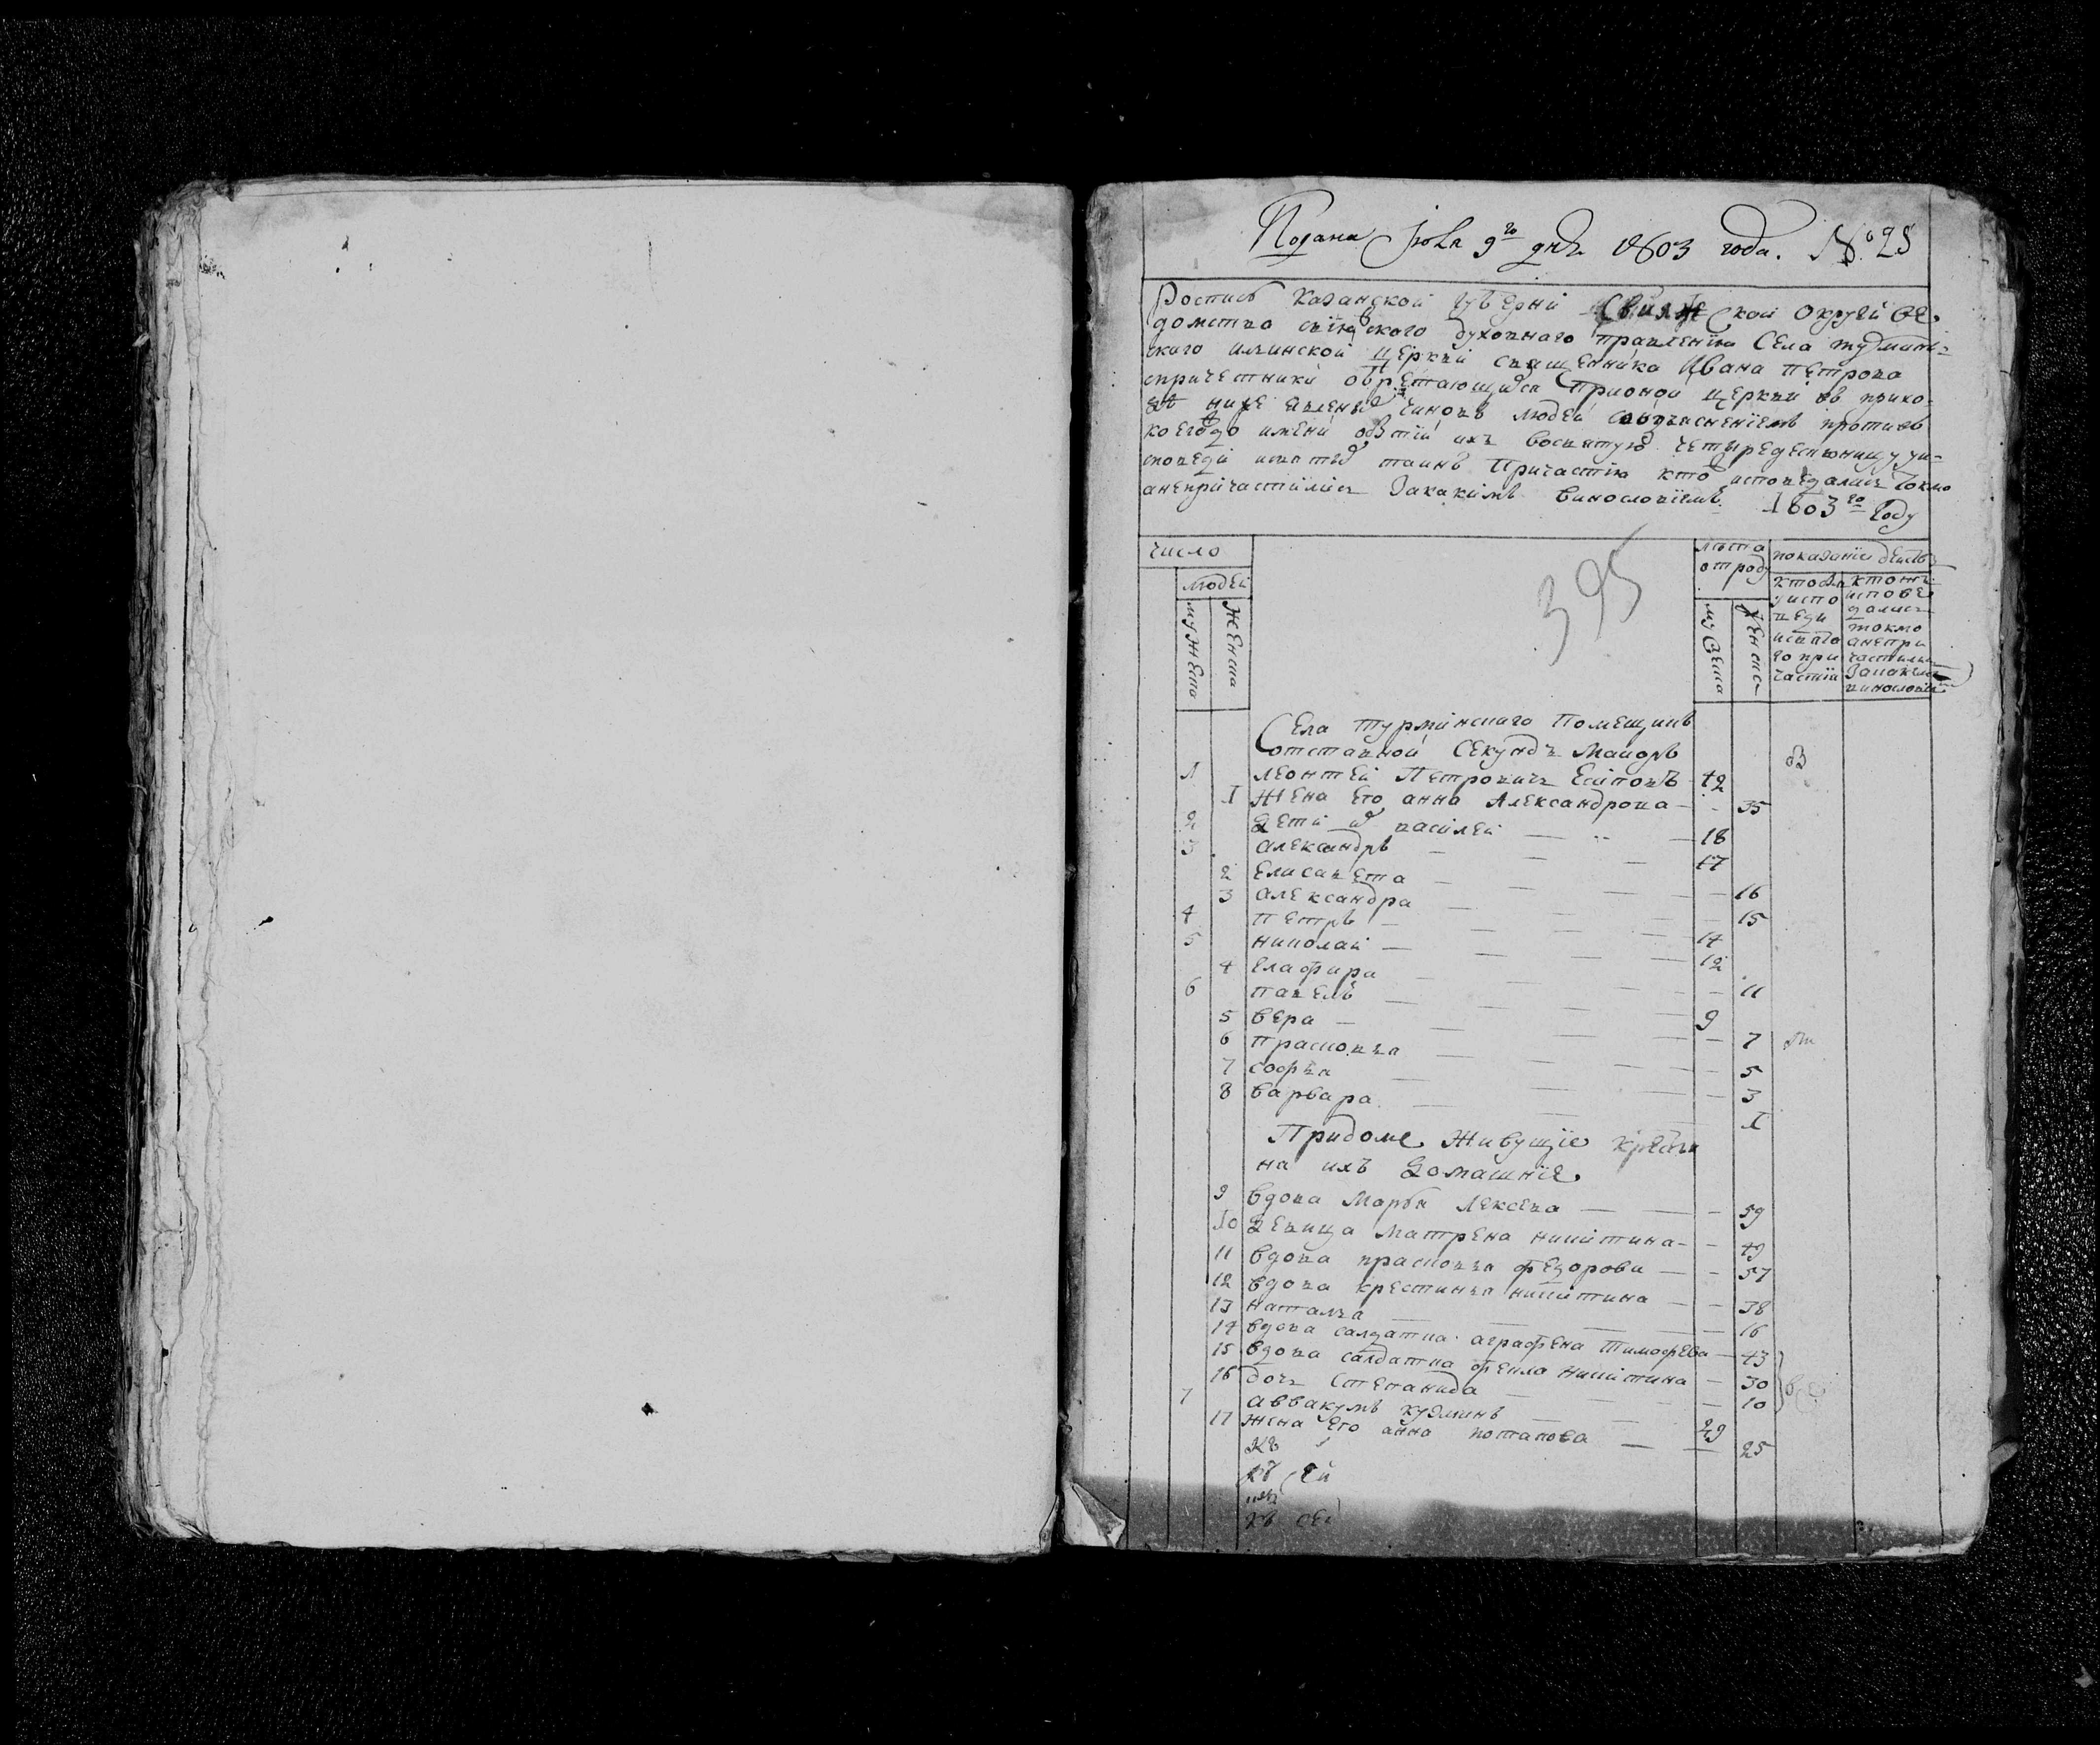 Подана Июля 9го дня 1803 года. № 25
Роспись Казанской губерни Свияжской округи ве-
домства свіяжского духовнаго правленїя Села турмин-
скаго ильинской церкви священника Ивана петрова
спричетники обретающихся прионой церкви въ прихо-
де ниже явленыхъ чиновъ людей соизъяснениемъ противъ
коегождо имени о бытіи ихъ восвятую четыредесятницу уи-
споведи исвятыхъ таинъ причастїя кто исповедались токмо
анепричастились Закакимъ винословїемъ. 1803го году
число
людей
мужеска
женска
395
лета
отроду
мужеска
женска
показание действ
ктобылъ
уиспо
веди
исвята
го при
частия
ктоже
испове
дались
токмо
анепри
частились
Закакимъ
винословием
Села турминскаго Помещикъ
отставной Секундъ Маиоръ
1 леонтей Петровичь Есиповъ 42
1 Жена его анна Александрова — 35
2 Дети ихъ василей — 18
3 александръ — 17
2 Елисавета — 16
3 александра — 15
4 петръ — 14
5 николай — 12
4 Глафира — 11
6 павелъ — 9
5 вера — 7
6 прасковья — 5
7 софья — 3
8 варвара — 1
Придоме живущїе крестья
на ихъ Домашнїе
9 вдова Марфа Лексева — 59
10 Девица Матрена никитина — 49
11 вдова прасковья федорова — 57
12 вдова крестинья никитина — 38
13 наталья — 16
14 вдова салдатка аграфена тимофева — 43
15 вдова салдатка фекла никитина — 30
16 дочь Степанида — 10
7 аввакумъ кузминъ — 29
17 жена его анна потапова — 25